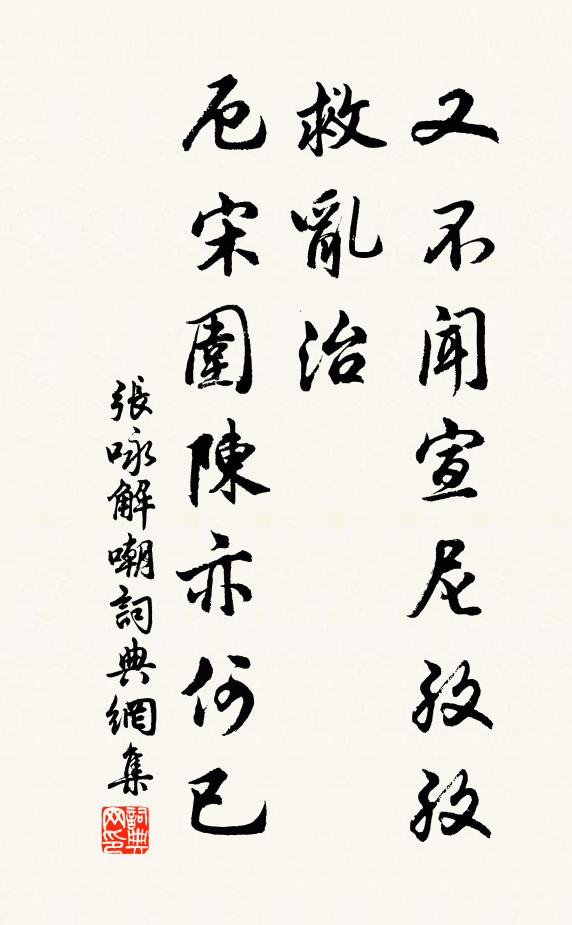 又不闻宣尼孜孜
救亂治
厄宋圍陳亦何已
張咏解嘲詞典網集
詞典网印